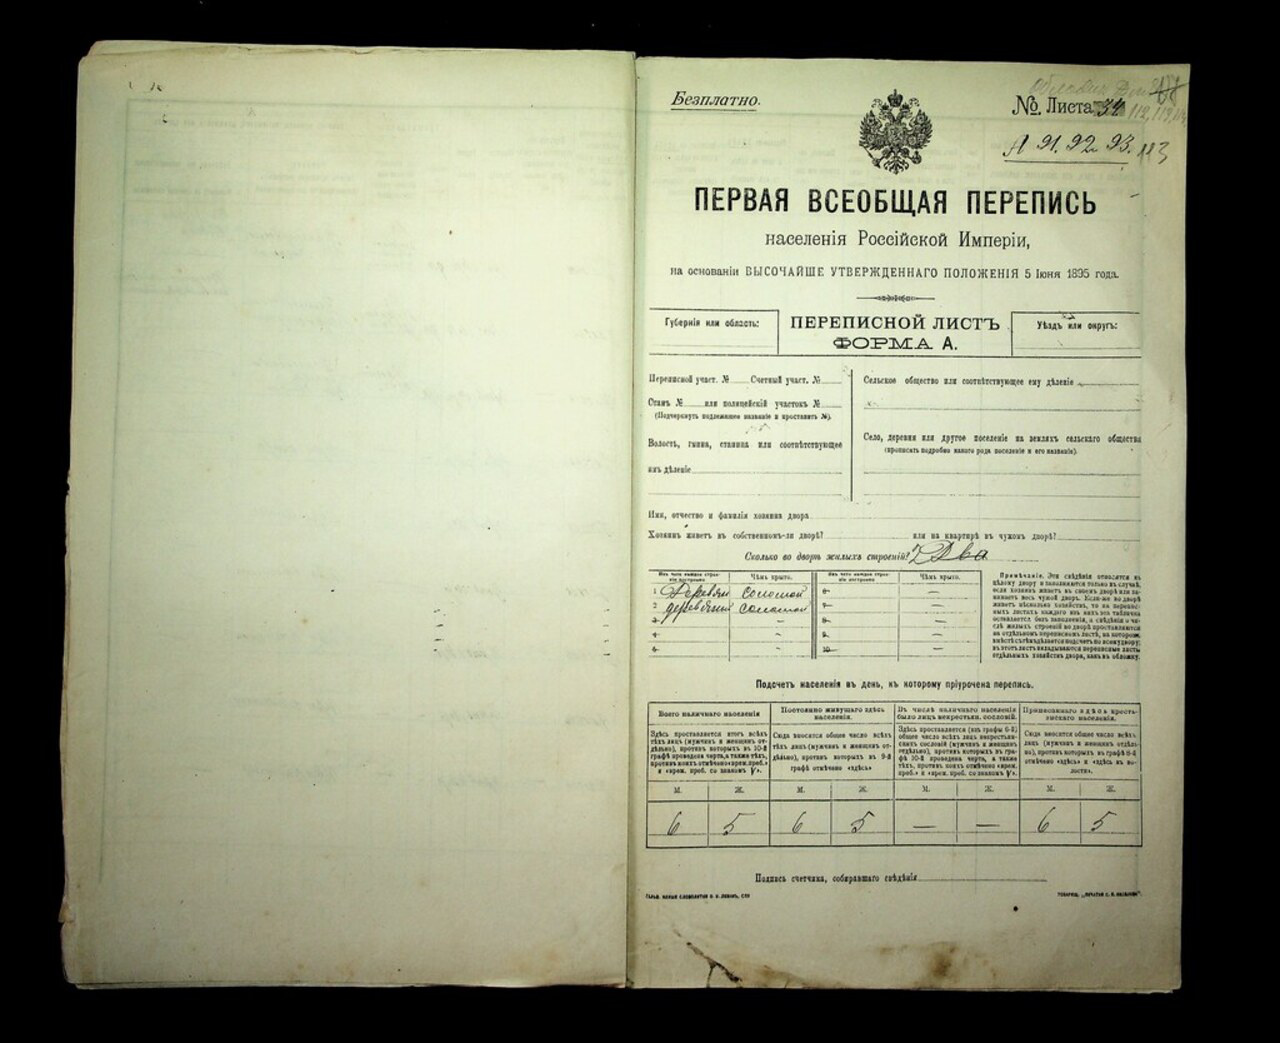 Безплатно.
№ Листа 34
А 91. 92. 93. 113
ПЕРВАЯ ВСЕОБЩАЯ ПЕРЕПИСЬ
населенія Россійской Имперіи,
на основаніи ВЫСОЧАЙШЕ УТВЕРЖДЕННАГО ПОЛОЖЕНІЯ 5 Іюня 1895 года.
Губернія или область:
ПЕРЕПИСНОЙ ЛИСТЪ
ФОРМА А.
Уѣздъ или округъ:
Переписной участ. № Счетный участ. №
Станъ № или полицейскій участокъ №
(Подчеркнуть подлежащее названіе и проставить №).
Волость, гмина, станица или соотвѣтствующее
имъ дѣленіе
Сельское общество или соотвѣтствующее ему дѣленіе
Село, деревня или другое поселеніе на земляхъ сельскаго общества
(прописать подробно какого рода поселеніе и его названіе).
Имя, отчество и фамилія хозяина двора
Хозяинъ живетъ въ собственномъ-ли дворѣ? или на квартирѣ въ чужомъ дворѣ?
Сколько во дворѣ жилыхъ строеній? Два
Изъ чего каждое строеніе построено Чѣмъ крыто. Изъ чего каждое строеніе построено Чѣмъ крыто.
1 Деревян соломой 6 —
2 деревянн соломой 7 —
3 - 8 —
4 - 9 —
5 - 10 —
Примѣчаніе. Эти свѣдѣнія относятся къ
цѣлому двору и заполняются только въ случаѣ,
если хозяинъ живетъ въ своемъ дворѣ или за-
нимаетъ весь чужой дворъ. Если-же во дворѣ
живетъ нѣсколько хозяйствъ, то на перепис-
ныхъ листахъ каждаго изъ нихъ эта табличка
оставляется безъ заполненія, а свѣдѣнія о чи-
слѣ жилыхъ строеній во дворѣ проставляются
на отдѣльномъ переписномъ листѣ, на которомъ
вмѣстѣ съ тѣмъ дѣлается подсчетъ по всему двору;
въ этотъ листъ вкладываются переписные листы
отдѣльныхъ хозяйствъ двора, какъ въ обложку.
Подсчетъ населенія въ день, къ которому пріурочена перепись.
Всего наличнаго населенія
Здѣсь проставляется итогъ всѣхъ
тѣхъ лицъ (мужчинъ и женщинъ от-
дѣльно), противъ которыхъ въ 10-й
графѣ проведена черта, а также тѣхъ,
противъ коихъ отмѣчено «врем. преб.»
и «врем. преб. со знакомъ V».
Постоянно живущаго здѣсь
населенія.
Сюда вносится общее число всѣхъ
тѣхъ лицъ (мужчинъ и женщинъ от-
дѣльно), противъ которыхъ въ 9-й
графѣ отмѣчено «здѣсь»
Въ числѣ наличнаго населенія
было лицъ некрестьян. сословій.
Здѣсь проставляется (изъ графы 6-й)
общее число всѣхъ лицъ некрестьян-
скихъ сословій (мужчинъ и женщинъ
отдѣльно), противъ которыхъ въ гра-
фѣ 10-й проведена черта, а также
тѣхъ, противъ коихъ отмѣчено «врем.
преб.» и «врем. преб. со знакомъ V».
Приписаннаго здѣсь кресть-
янскаго населенія.
Сюда вносится общее число всѣхъ
лицъ (мужчинъ и женщинъ отдѣль-
но), противъ которыхъ въ графѣ 8-й
отмѣчено «здѣсь» и «здѣсь въ во-
лости».
М. Ж. М. Ж. М. Ж. М. Ж.
6 5 6 5 — — 6 5
Подпись счетчика, собиравшаго свѣдѣнія